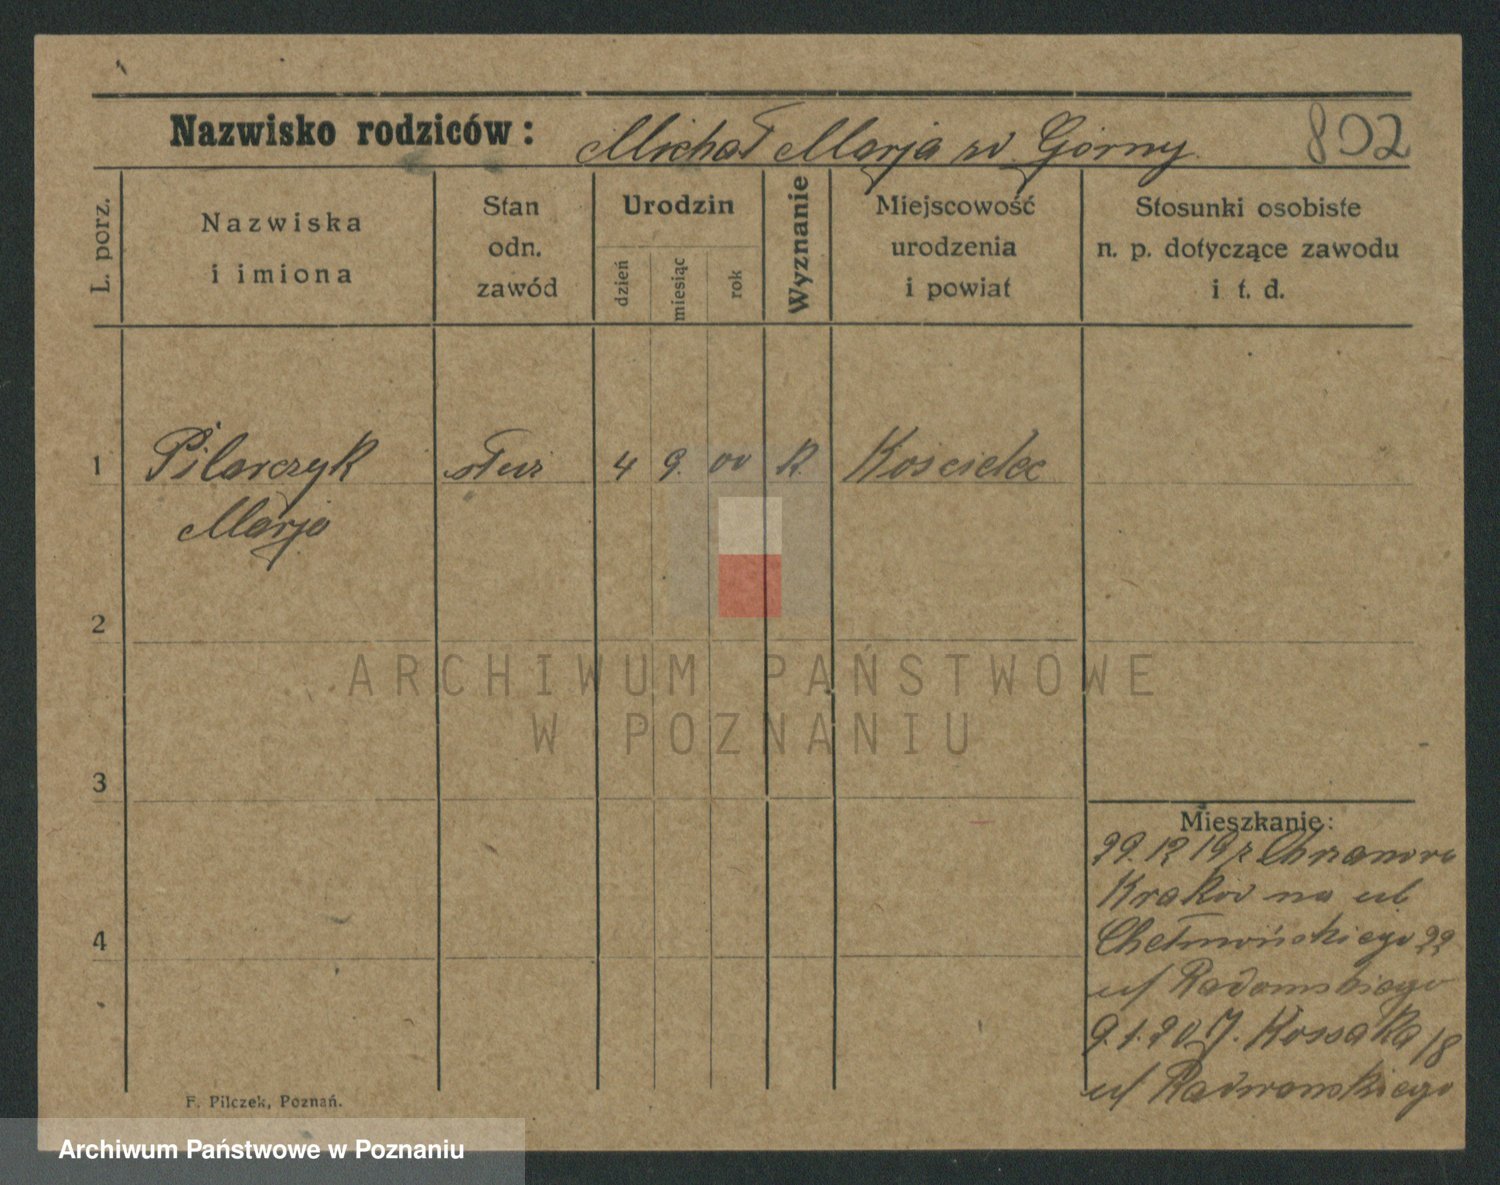 Nazwisko rodziców: Michał Marja w Górny 802
L. porz.
Nazwiska
i imiona
Stan
odn.
zawód
Urodzin
dzień
miesiąc
rok
Wyznanie
Miejscowość
urodzenia
i powiat
Stosunki osobiste
n. p. dotyczące zawodu
i t. d.
1 Pilarczyk służ 4 9. 00 K. Kościelec
Marja
2
3
4
ARCHIWUM PAŃSTWOWE
W POZNANIU
Mieszkanie:
29.12 19 z
Kraków na ul
Chełmońskiego 22
u/ Radomskiego
9.1.20 J. Kossaka 18
u/ Radwanskiego
F. Pilczek, Poznań.
Archiwum Państwowe w Poznaniu